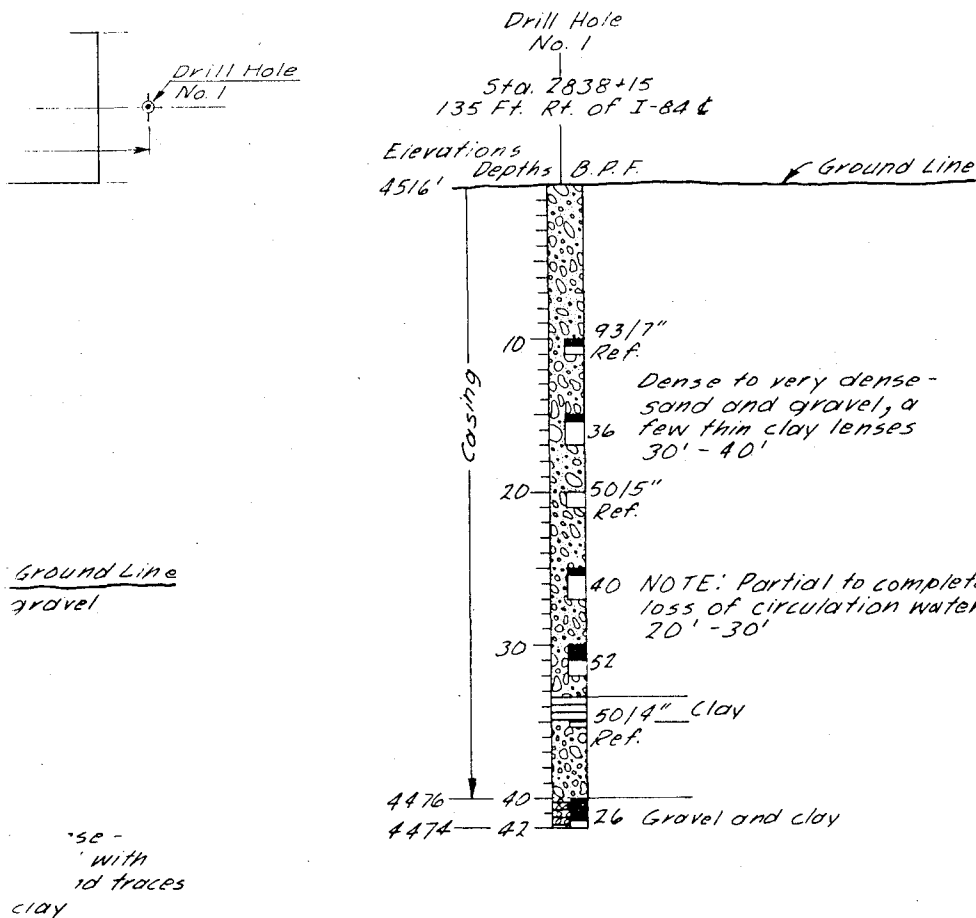 Drill Hole
No. 1
Drill Hole
No. 1
Sta. 2838+15
135 Ft. Rt. of I-84 ℄
Elevations
Depths B.P.F.
Ground Line
4516'
Casing
10
93/7"
Ref.
Dense to very dense-
sand and gravel, a
few thin clay lenses
30' - 40'
36
20
50/5"
Ref.
40
NOTE: Partial to complete
loss of circulation water
20' - 30'
30
52
50/4"
Clay
Ref.
4476
40
26
Gravel and clay
4474
42
Ground Line
gravel
with
traces
clay